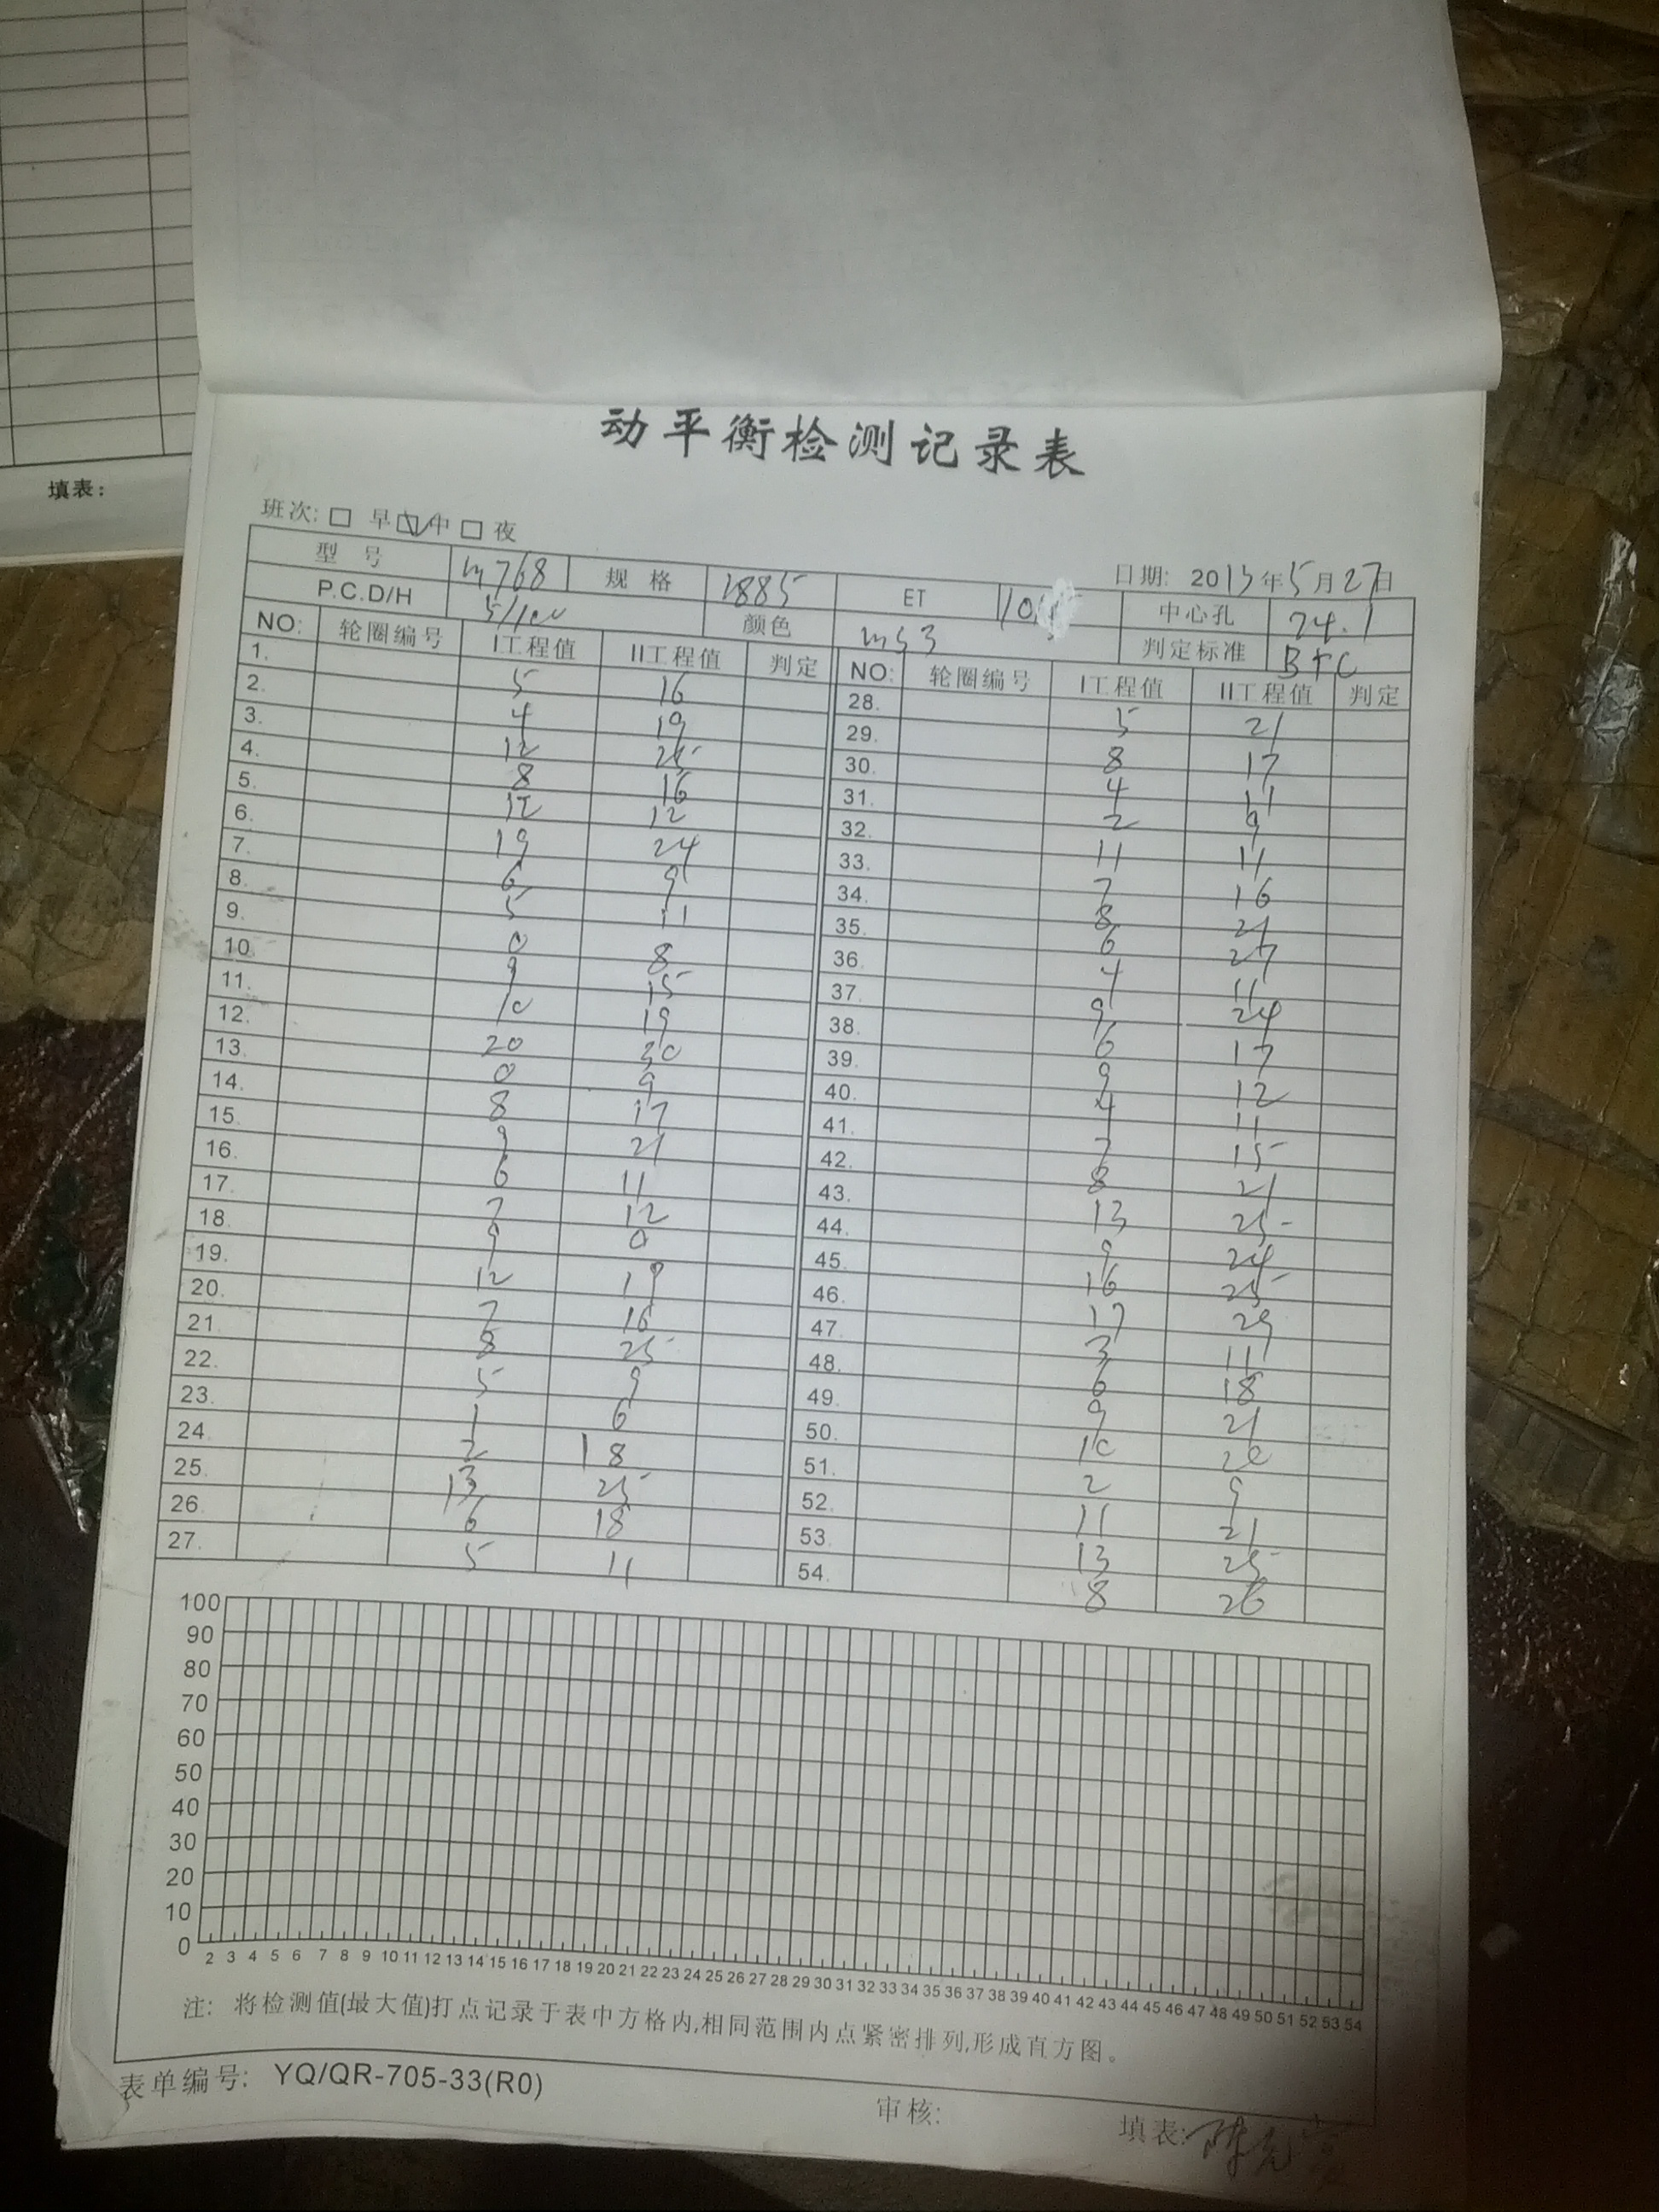 填表：
动平衡检测记录表
班次: □ 早 ☑ 中 □ 夜
日期: 2013年5月27日
型号 m768 规格 1885 ET 10 中心孔 74.1
P.C.D/H 5/100 颜色 ms3 判定标准 B+C
NO: 轮圈编号 I工程值 II工程值 判定 NO: 轮圈编号 I工程值 II工程值 判定
1. 5 16 28. 5 21
2. 4 19 29. 8 17
3. 12 25 30. 4 11
4. 8 16 31. 2 9
5. 12 12 32. 11 11
6. 19 24 33. 7 16
7. 6 9 34. 8 21
8. 5 11 35. 6 27
9. 0 8 36. 4 11
10. 9 15 37. 9 24
11. 10 19 38. 6 17
12. 20 30 39. 9 12
13. 0 9 40. 4 11
14. 8 17 41. 7 15
15. 9 21 42. 8 21
16. 6 11 43. 13 25
17. 7 12 44. 9 24
18. 9 0 45. 16 25
19. 12 19 46. 17 29
20. 7 16 47. 3 11
21. 8 25 48. 6 18
22. 5 9 49. 9 21
23. 1 6 50. 10 20
24. 2 18 51. 2 9
25. 13 25 52. 11 21
26. 6 18 53. 13 25
27. 5 11 54. 8 26
100
90
80
70
60
50
40
30
20
10
0
2 3 4 5 6 7 8 9 10 11 12 13 14 15 16 17 18 19 20 21 22 23 24 25 26 27 28 29 30 31 32 33 34 35 36 37 38 39 40 41 42 43 44 45 46 47 48 49 50 51 52 53 54
注: 将检测值(最大值)打点记录于表中方格内,相同范围内点紧密排列,形成直方图。
表单编号: YQ/QR-705-33(R0)
审核:
填表: 陈